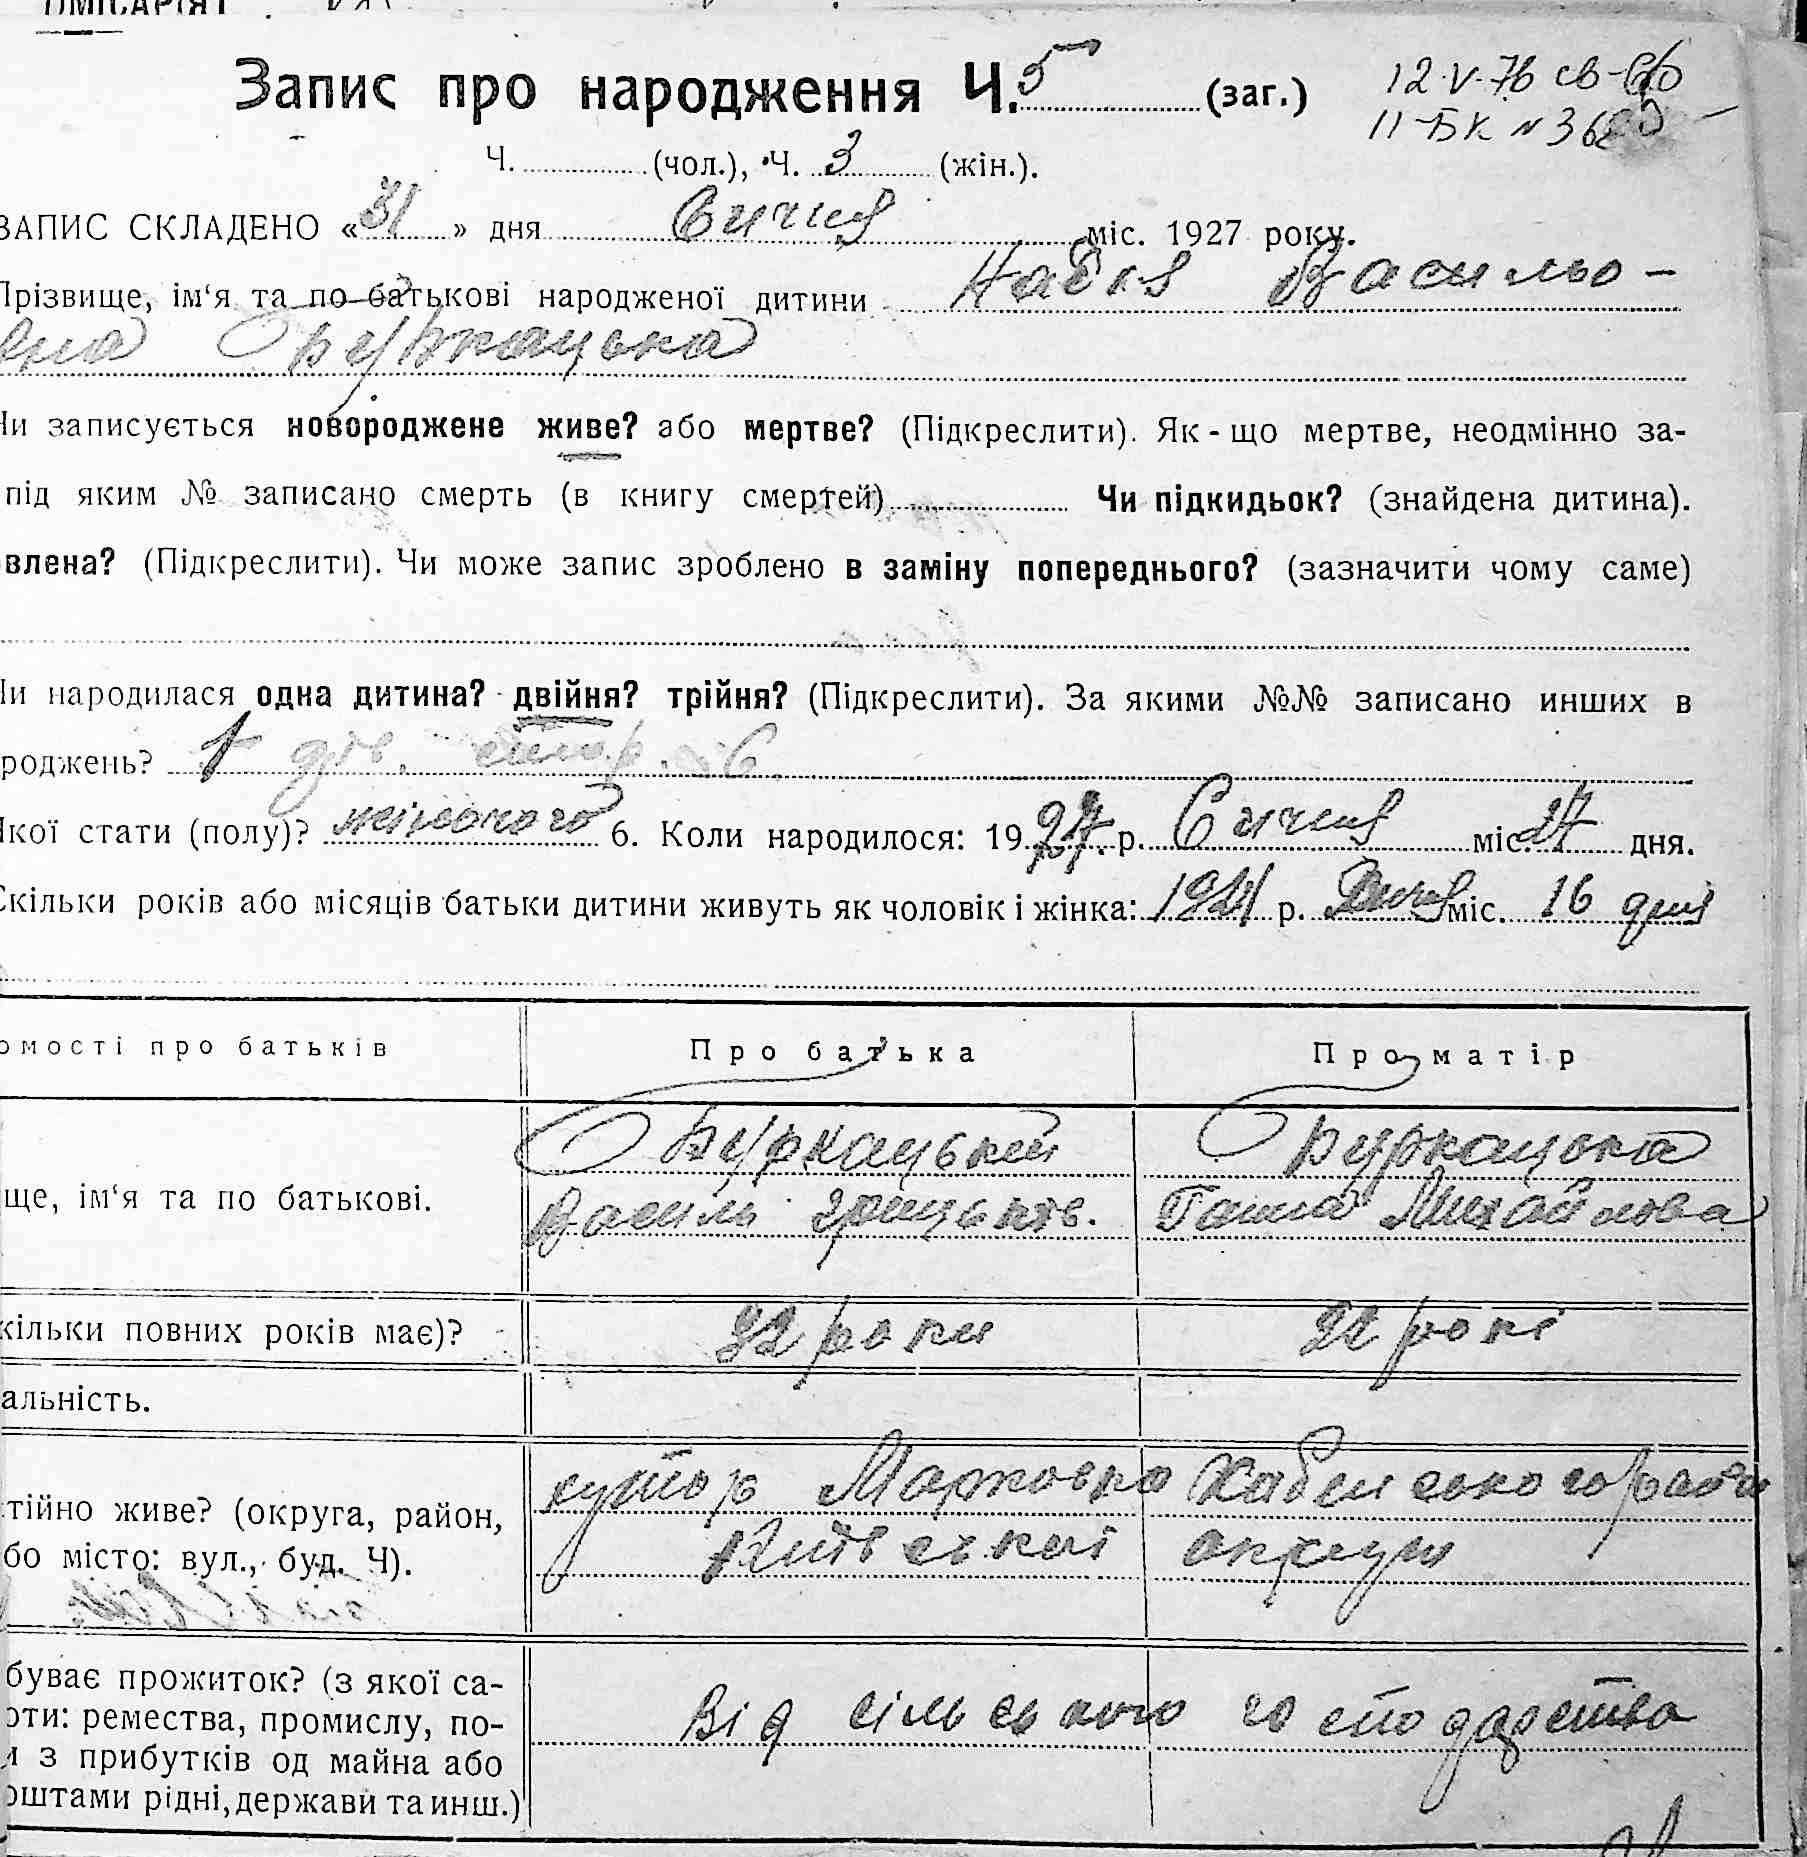 Запис про народження Ч. 5 (заг.)
12-V-76 св-во
II-БК № 36
Ч. (чол.), Ч. 3 (жін.).
ЗАПИС СКЛАДЕНО «31» дня Січня міс. 1927 року.
Прізвище, ім‘я та по батькові народженої дитини Надія Василь-
вна Буркацька
Чи записується новороджене живе? або мертве? (Підкреслити). Як-що мертве, неодмінно за-
під яким № записано смерть (в книгу смертей) Чи підкидьок? (знайдена дитина).
влена? (Підкреслити). Чи може запис зроблено в заміну попереднього? (зазначити чому саме)
Чи народилася одна дитина? двійня? трійня? (Підкреслити). За якими №№ записано инших в
роджень? 1 дів. 6.
Якої стати (полу)? жіночого 6. Коли народилося: 1927 р. Січня міс. 27 дня.
Скільки років або місяців батьки дитини живуть як чоловік і жінка: 1924 р. міс. 16 дня
омості про батьків Про батька Про матір
Буркацький Буркацька
ще, ім‘я та по батькові. Василь Грицьків. Ганна Михайлова
кільки повних років має)? 22 роки 22 рокі
альність.
хутор Марковка Хабенського район
тійно живе? (округа, район, Київської округи
бо місто: вул., буд. Ч).
буває прожиток? (з якої са-
оти: ремества, промислу, по- Від сільського господарства
и з прибутків од майна або
оштами рідні, держави та инш.)